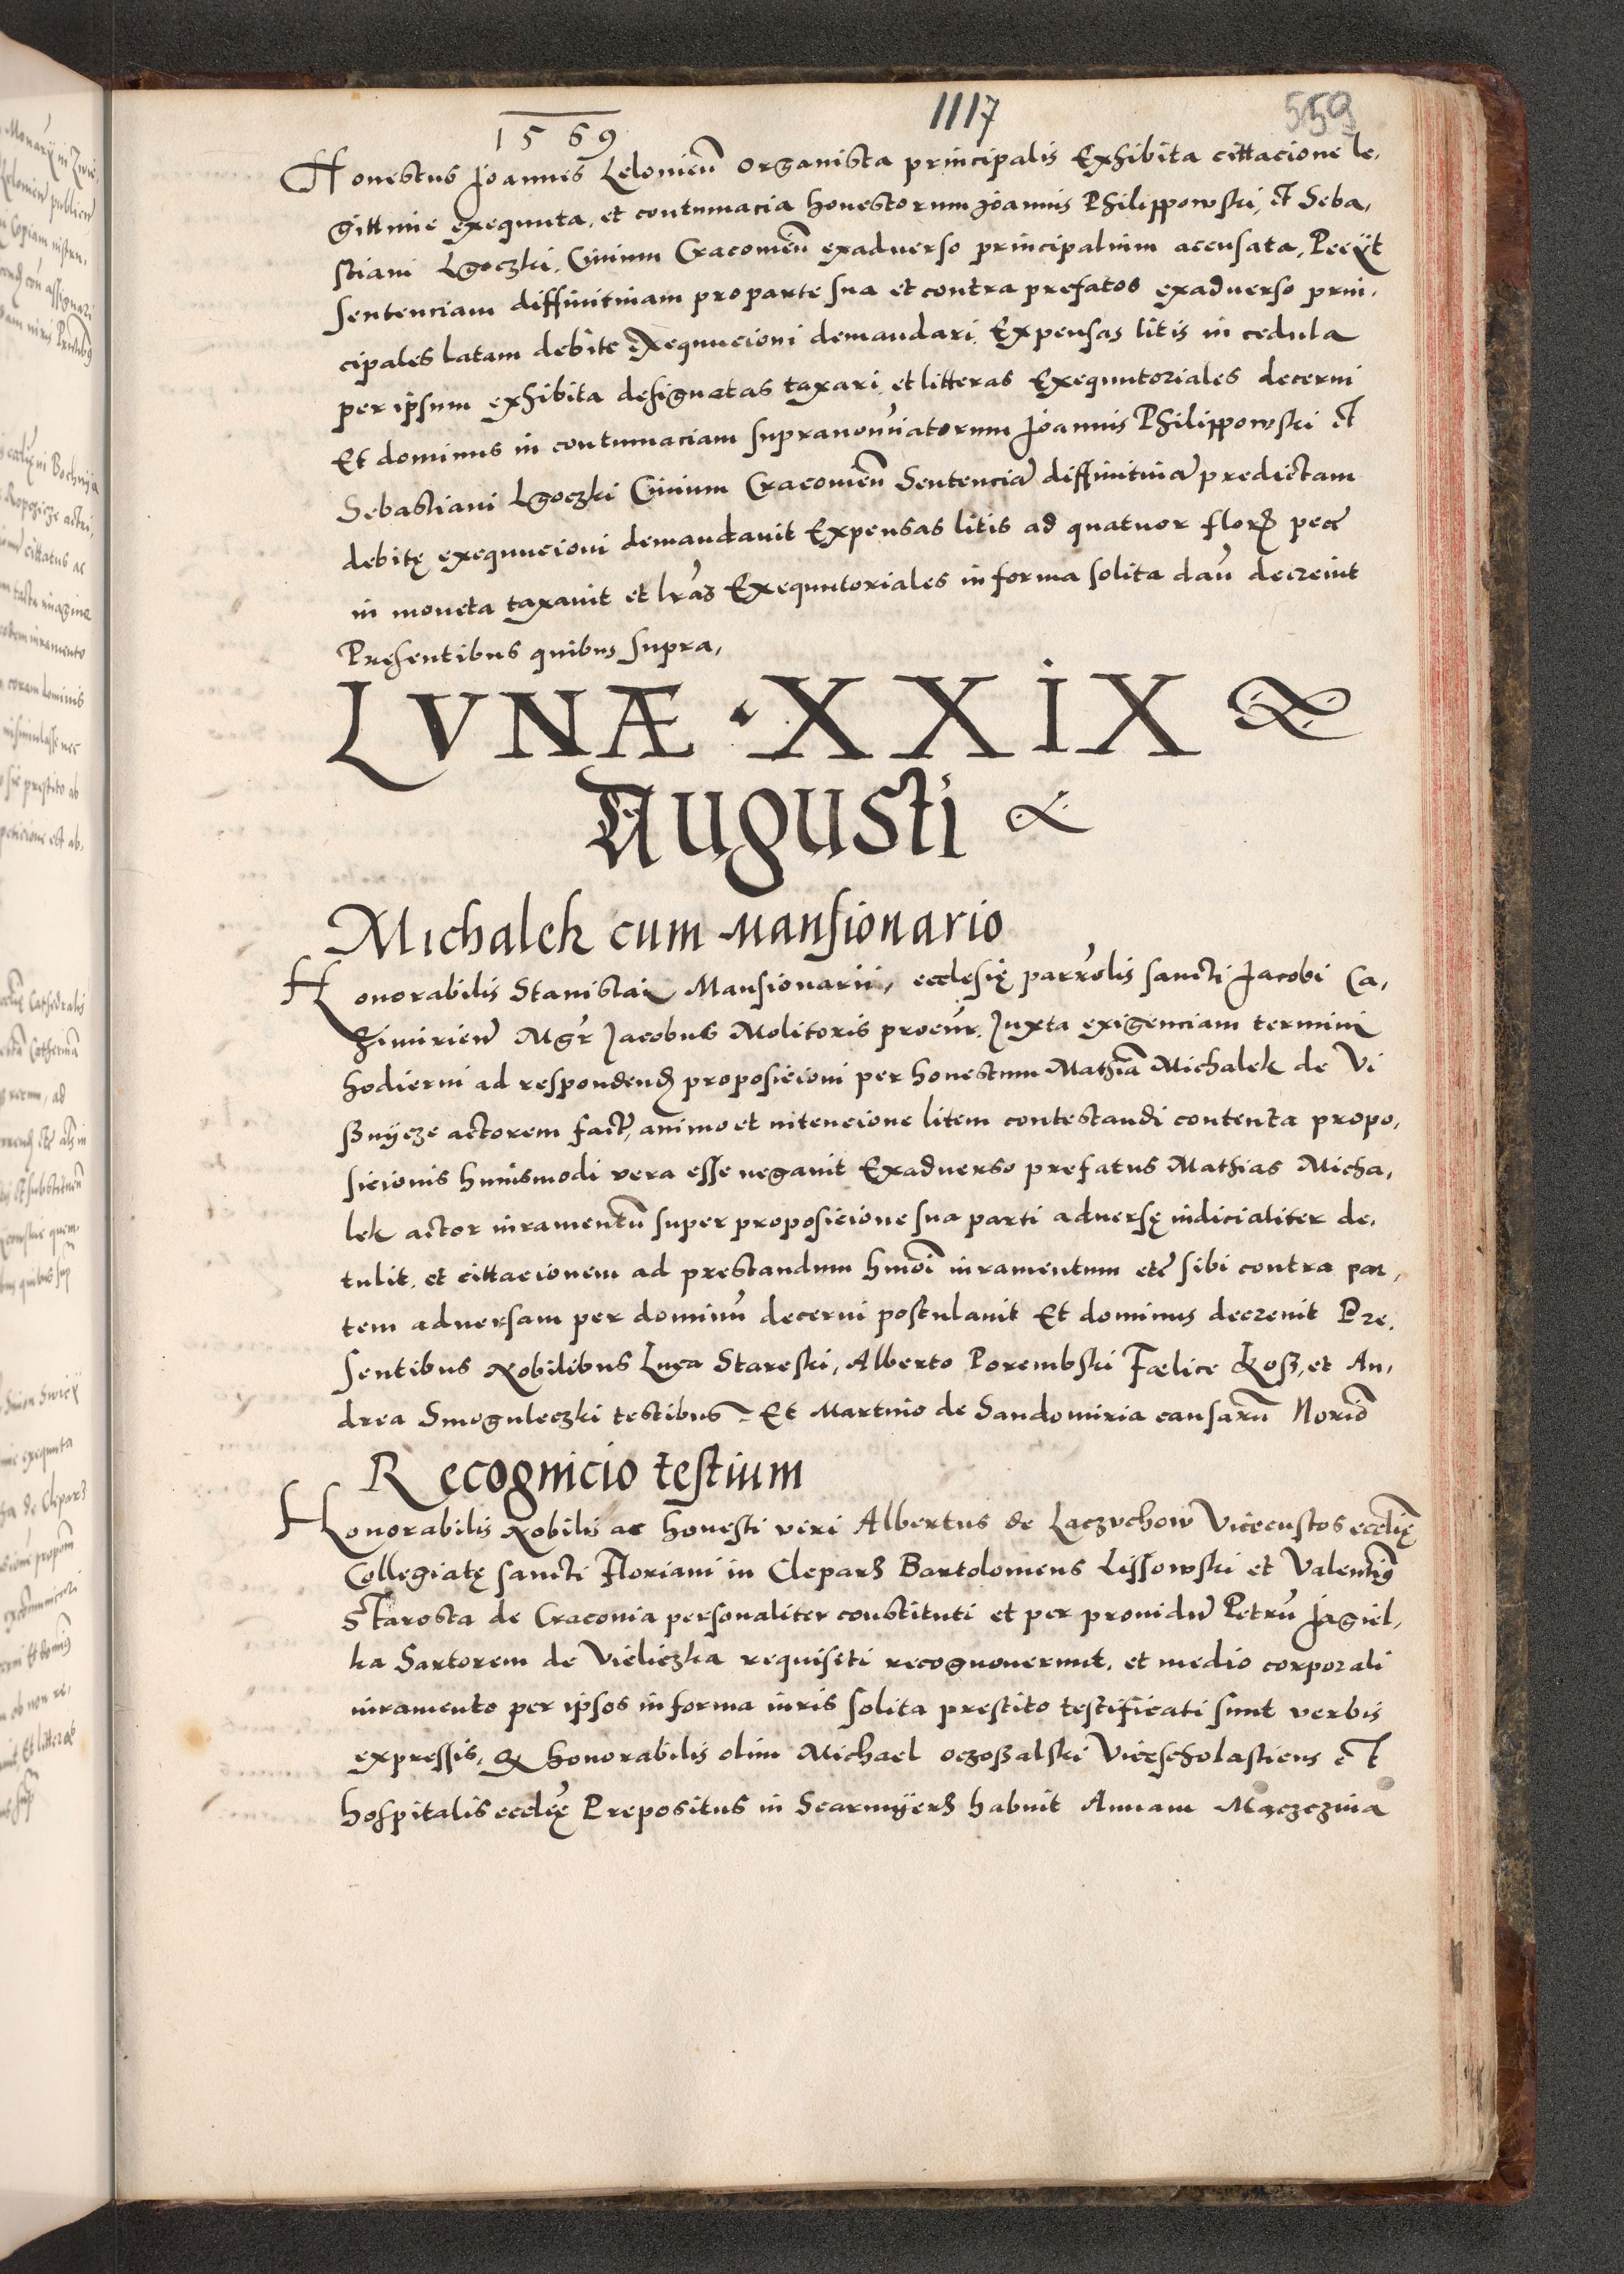 1569
1117
559
Honestus Joannes Leloviens̃ organista principalis Exhibita cittacione le,
gittime exequuta, et contumacia honestorum Joannis Philippowski, et Seba,
stiani Lgoczki, Civium Cracovieñ exadverso principalium accusata, Peciit
sententiam diffinitivam pro parte sua et contra prefatos exadverso prin,
cipales latam debite exequucioni demandari, Expensas litis in cedula
per ipsum exhibita designatas taxari, et litteras Exequutoriales decerni
Et dominus in contumaciam supranoĩatorum Joannis Philippowski et
Sebastiani Lgoczki Civium Cracovieñ Sentenciã diffinitivã predictam
debitę exequucioni demandavit Expensas litis ad quatuor flor pecc
in moneta taxavit et lrãs Exequutoriales in forma solita dañ decrevit
Pręsentibus quibus supra,
LVNÆ · XXIX
Augusti
Michalek cum mansionario
Honorabilis Stanislai Mansionarii, ecclesię parrolis sancti Jacobi Ca,
zimirien Mgr Jacobus Molitoris procur, Juxta exigenciam termini
hodierni ad respondend proposicioni per honestum Mathiã Michalek de Vi
sznycze actorem fact, animo et intencione litem contestandi contenta propo,
sicionis huiusmodi vera esse negavit Exadverso prefatus Mathias Micha,
lek actor iuramentũ super proposicione sua parti adversę iudicialiter de,
tulit, et cittacionem ad prestandum hmõi iuramentum etc sibi contra par,
tem adversam per dominũ decerni postulavit Et dominus decrevit Pre,
sentibus Nobilibus Luca Stareski, Alberto Porembski Fælice Kosz, et An,
drea Smoguleczki testibus Et Martino de Sandomiria causarũ Norio
Recognicio testium
Honorabilis Nobilis ac honesti viri Albertus de Laczuchow Vicecustos ecclię
Collegiatę sancti Floriani in Clepar Bartolomeus Lissowski et Valentinus
Starosta de Cracovia personaliter constituti et per providũ Petrũ Jagiel,
ka Sartorem de Vieliczka requisiti recognoverunt, et medio corporali
iuramento per ipsos in forma iuris solita prestito testificati sunt verbis
expressis, Honorabilis olim Michael oczoszalski Vicescholasticus et
hospitalis ecclię Prepositus in Scarmyer habuit Annam Mączczina